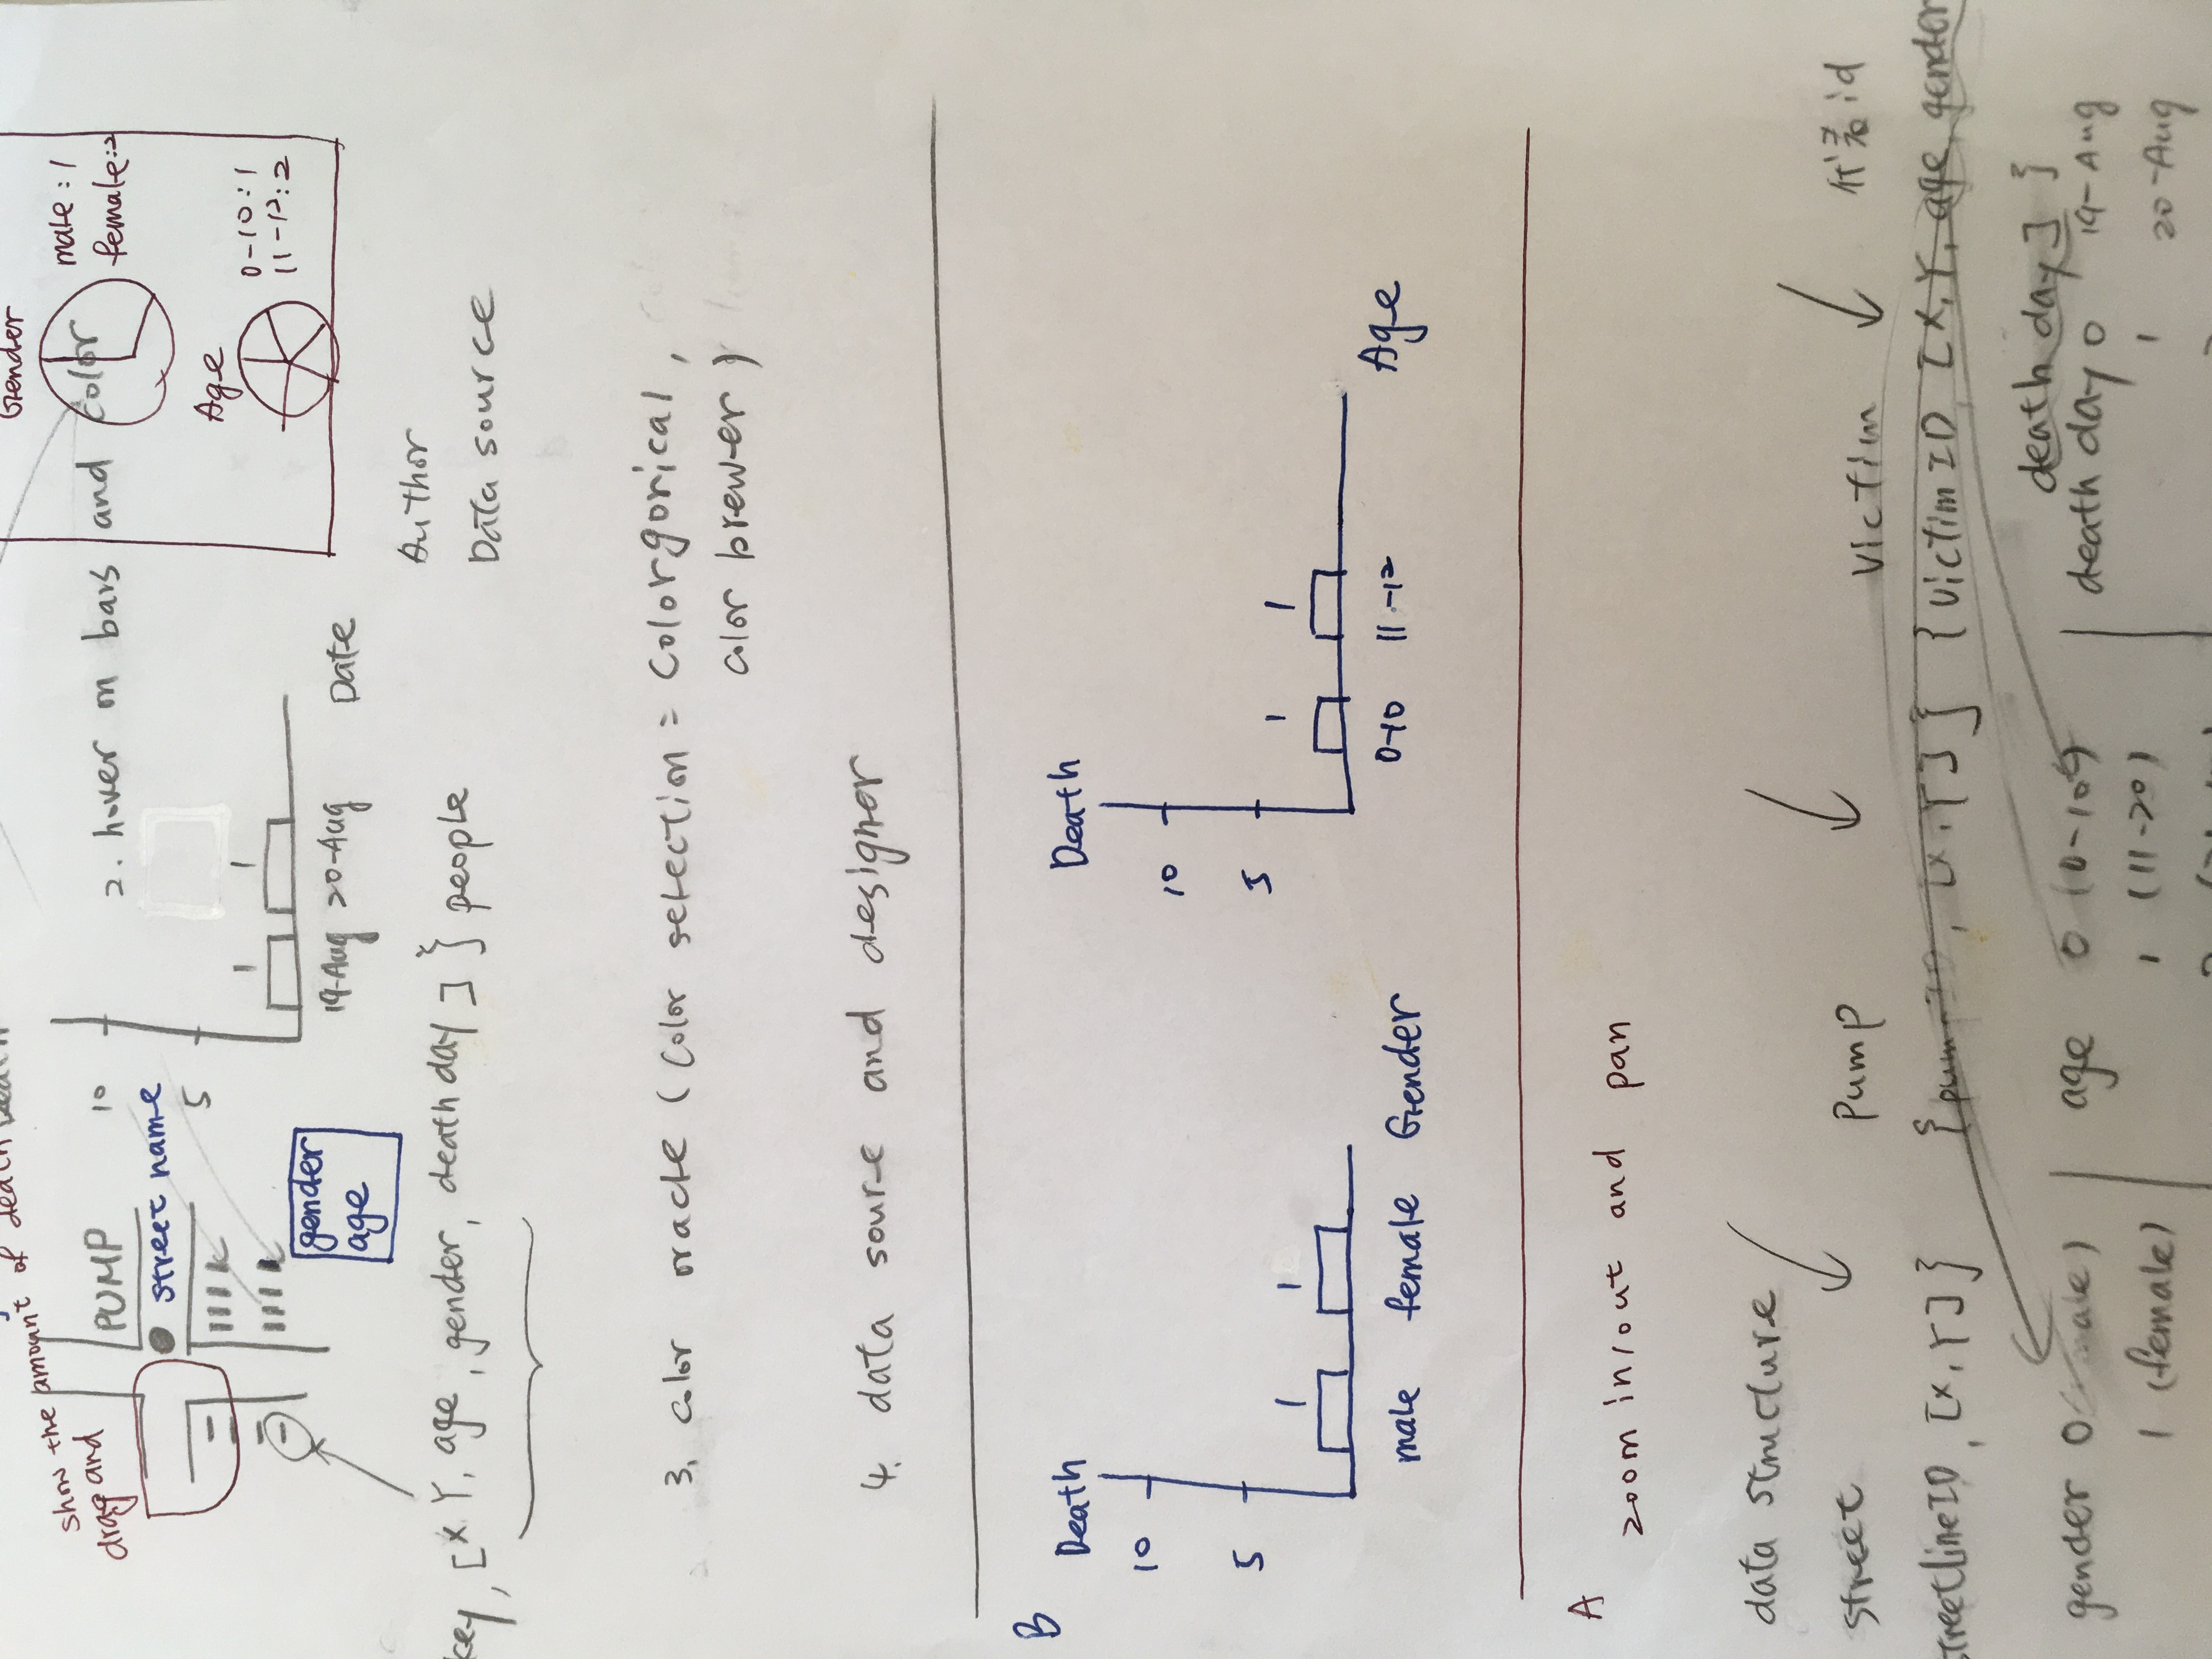 show the amount of death Death
drag and
PUMP
street name
gender
age
10
5
1 1
19-Aug 20-Aug Date
2. hover on bars and color
Gender
male : 1
female : 2
Age
0-10 : 1
11-12 : 2
key, [X Y, age, gender, death day ] } people
Author
Data source
3. color oracle ( color selection = Colorgorical,
color brewer )
4. data source and designer
B
Death
10
5
1 1
male female Gender
Death
10
5
1 1
0-10 11-12 Age
A
zoom in/out and pan
data structure
street Pump Victim 代表 id
treetlineID, [X, Y] } { pumpID, [X, Y] } { VictimID, [X, Y, age, gender
death day ] }
gender 0 (male) age 0 (0-10) death day 0 19-Aug
1 (female) 1 (11-20) 1 20-Aug